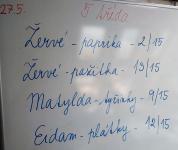 27.5. 5 třída
Žervé - paprika - 2/15
Žervé - pažitka - 13/15
Matylda - tyčinky - 9/15
Eidam - plátky - 12/15